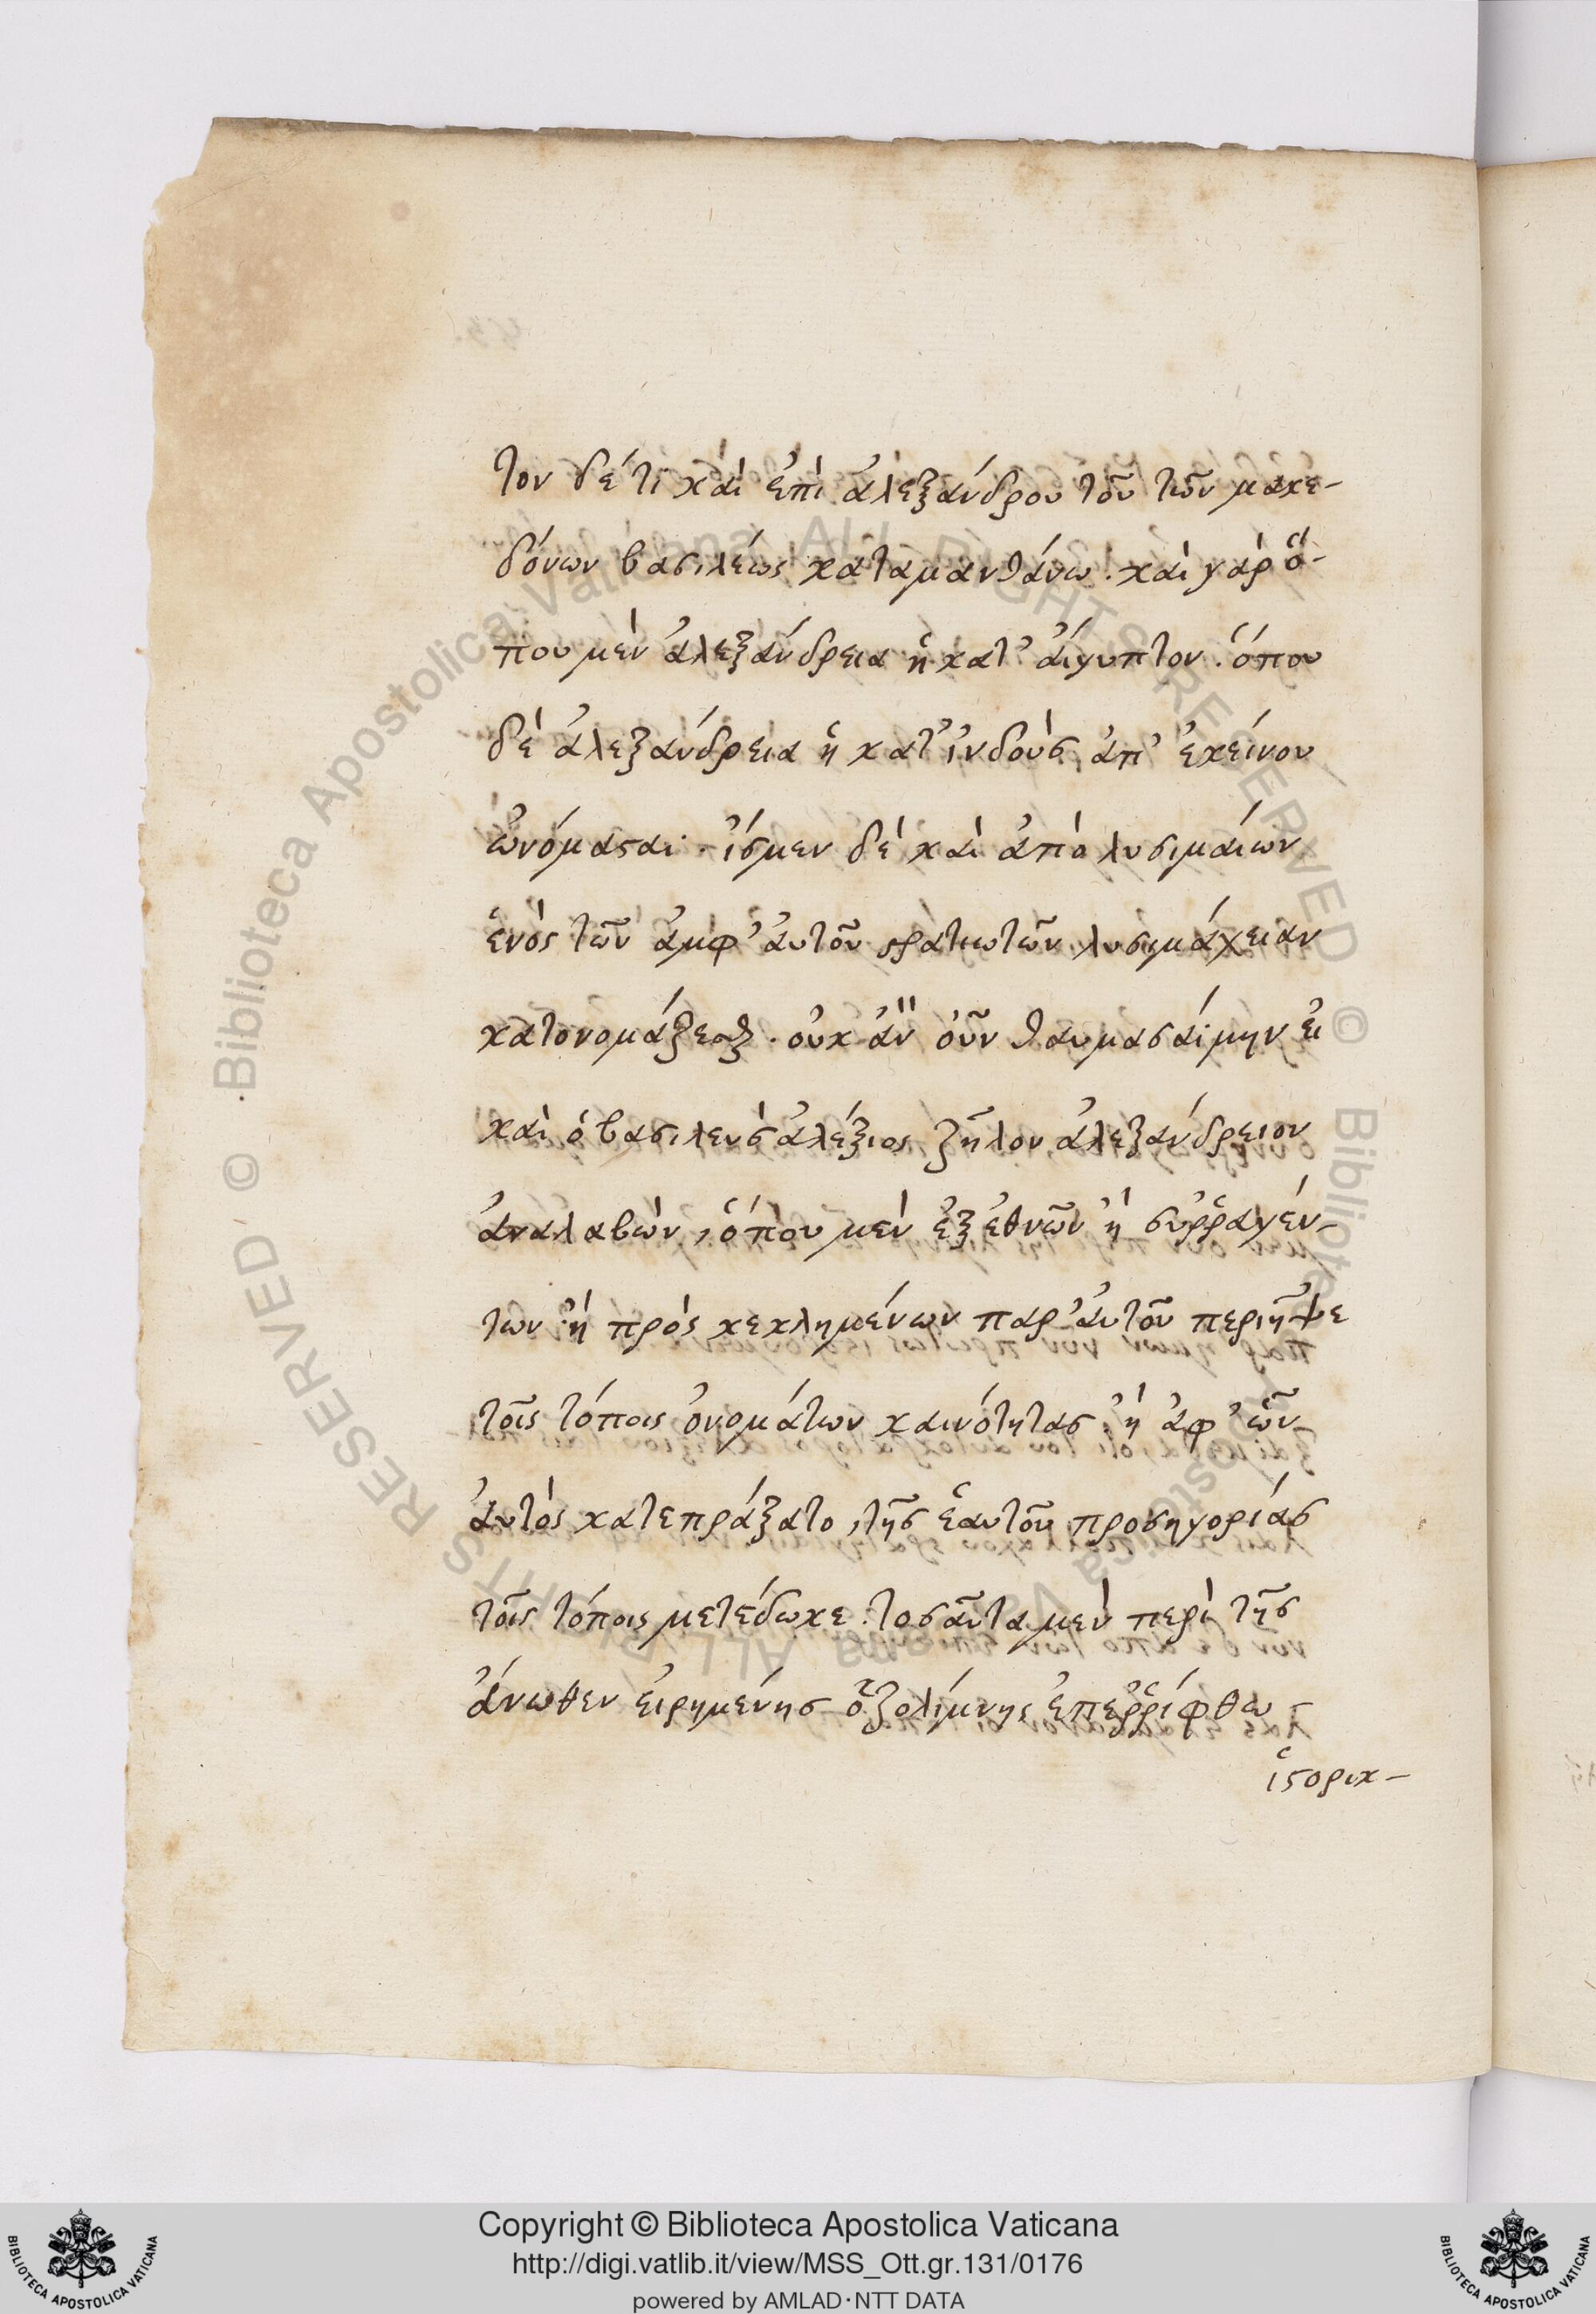 τον δέ τι καὶ ἐπὶ ἀλεξάνδρου τοῦ τῶν μακε-
δόνων βασιλέως καταμανθάνω. καὶ γὰρ ὅ-
που μὲν ἀλεξάνδρεια ἡ κατ' ἀίγυπτον. ὅπου
δὲ ἀλεξάνδρεια ἡ κατ' ἰνδοὺς ἀπ' ἐκείνου
ὠνόμασαι. ἴσμεν δὲ καὶ ἀπὸ λυσιμαίων
ἑνὸς τῶν ἀμφ' ἀυτὸν στρατιωτῶν λυσιμάχειαν
κατονομάζεσθαι. οὐκ ἂν οὖν θαυμασάιμην ἐι
καὶ ὁ βασιλεὺς ἀλέξιος ζῆλον ἀλεξάνδρειον
ἀναλαβὼν, ὅπου μὲν ἐξ ἐθνῶν ἢ συῤῥαγέν-
των ἢ πρὸς κεκλημένων παρ' ἀυτοῦ περιῆψε
τοῖς τόποις ὀνομάτων καινότητας ἢ ἀφ' ὧν
ἀυτὸς κατεπράξατο, τῆς ἑαυτοῦ προσηγορίας
τοῖς τόποις μετέδωκε. τοσαῦτα μὲν περὶ τῆς
ἄνωθεν ἐιρημένης ὀζολίμνης ἐπεῤῥίφθω
ἱστορικ-
Copyright © Biblioteca Apostolica Vaticana
http://digi.vatlib.it/view/MSS_Ott.gr.131/0176
powered by AMLAD·NTT DATA
BIBLIOTECA APOSTOLICA VATICANA
BIBLIOTECA APOSTOLICA VATICANA